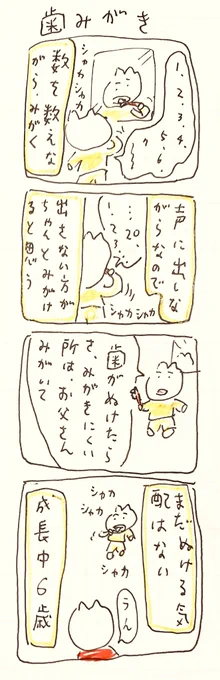 歯みがき
1.2.3.4.
5.6.
7
シャカ
シャカ
数を数えな
がらみがく
声に出しな
がらなので
1...20
1...
2.3.
シャカ シャカ
出さない方が
ちゃんとみがけ
ると思う
歯がぬけたら
さ、みがきにくい
所は、お父さん
みがいて
まだぬける気
配はない
シャカ
シャカ
シャカ
うん
成長中6歳